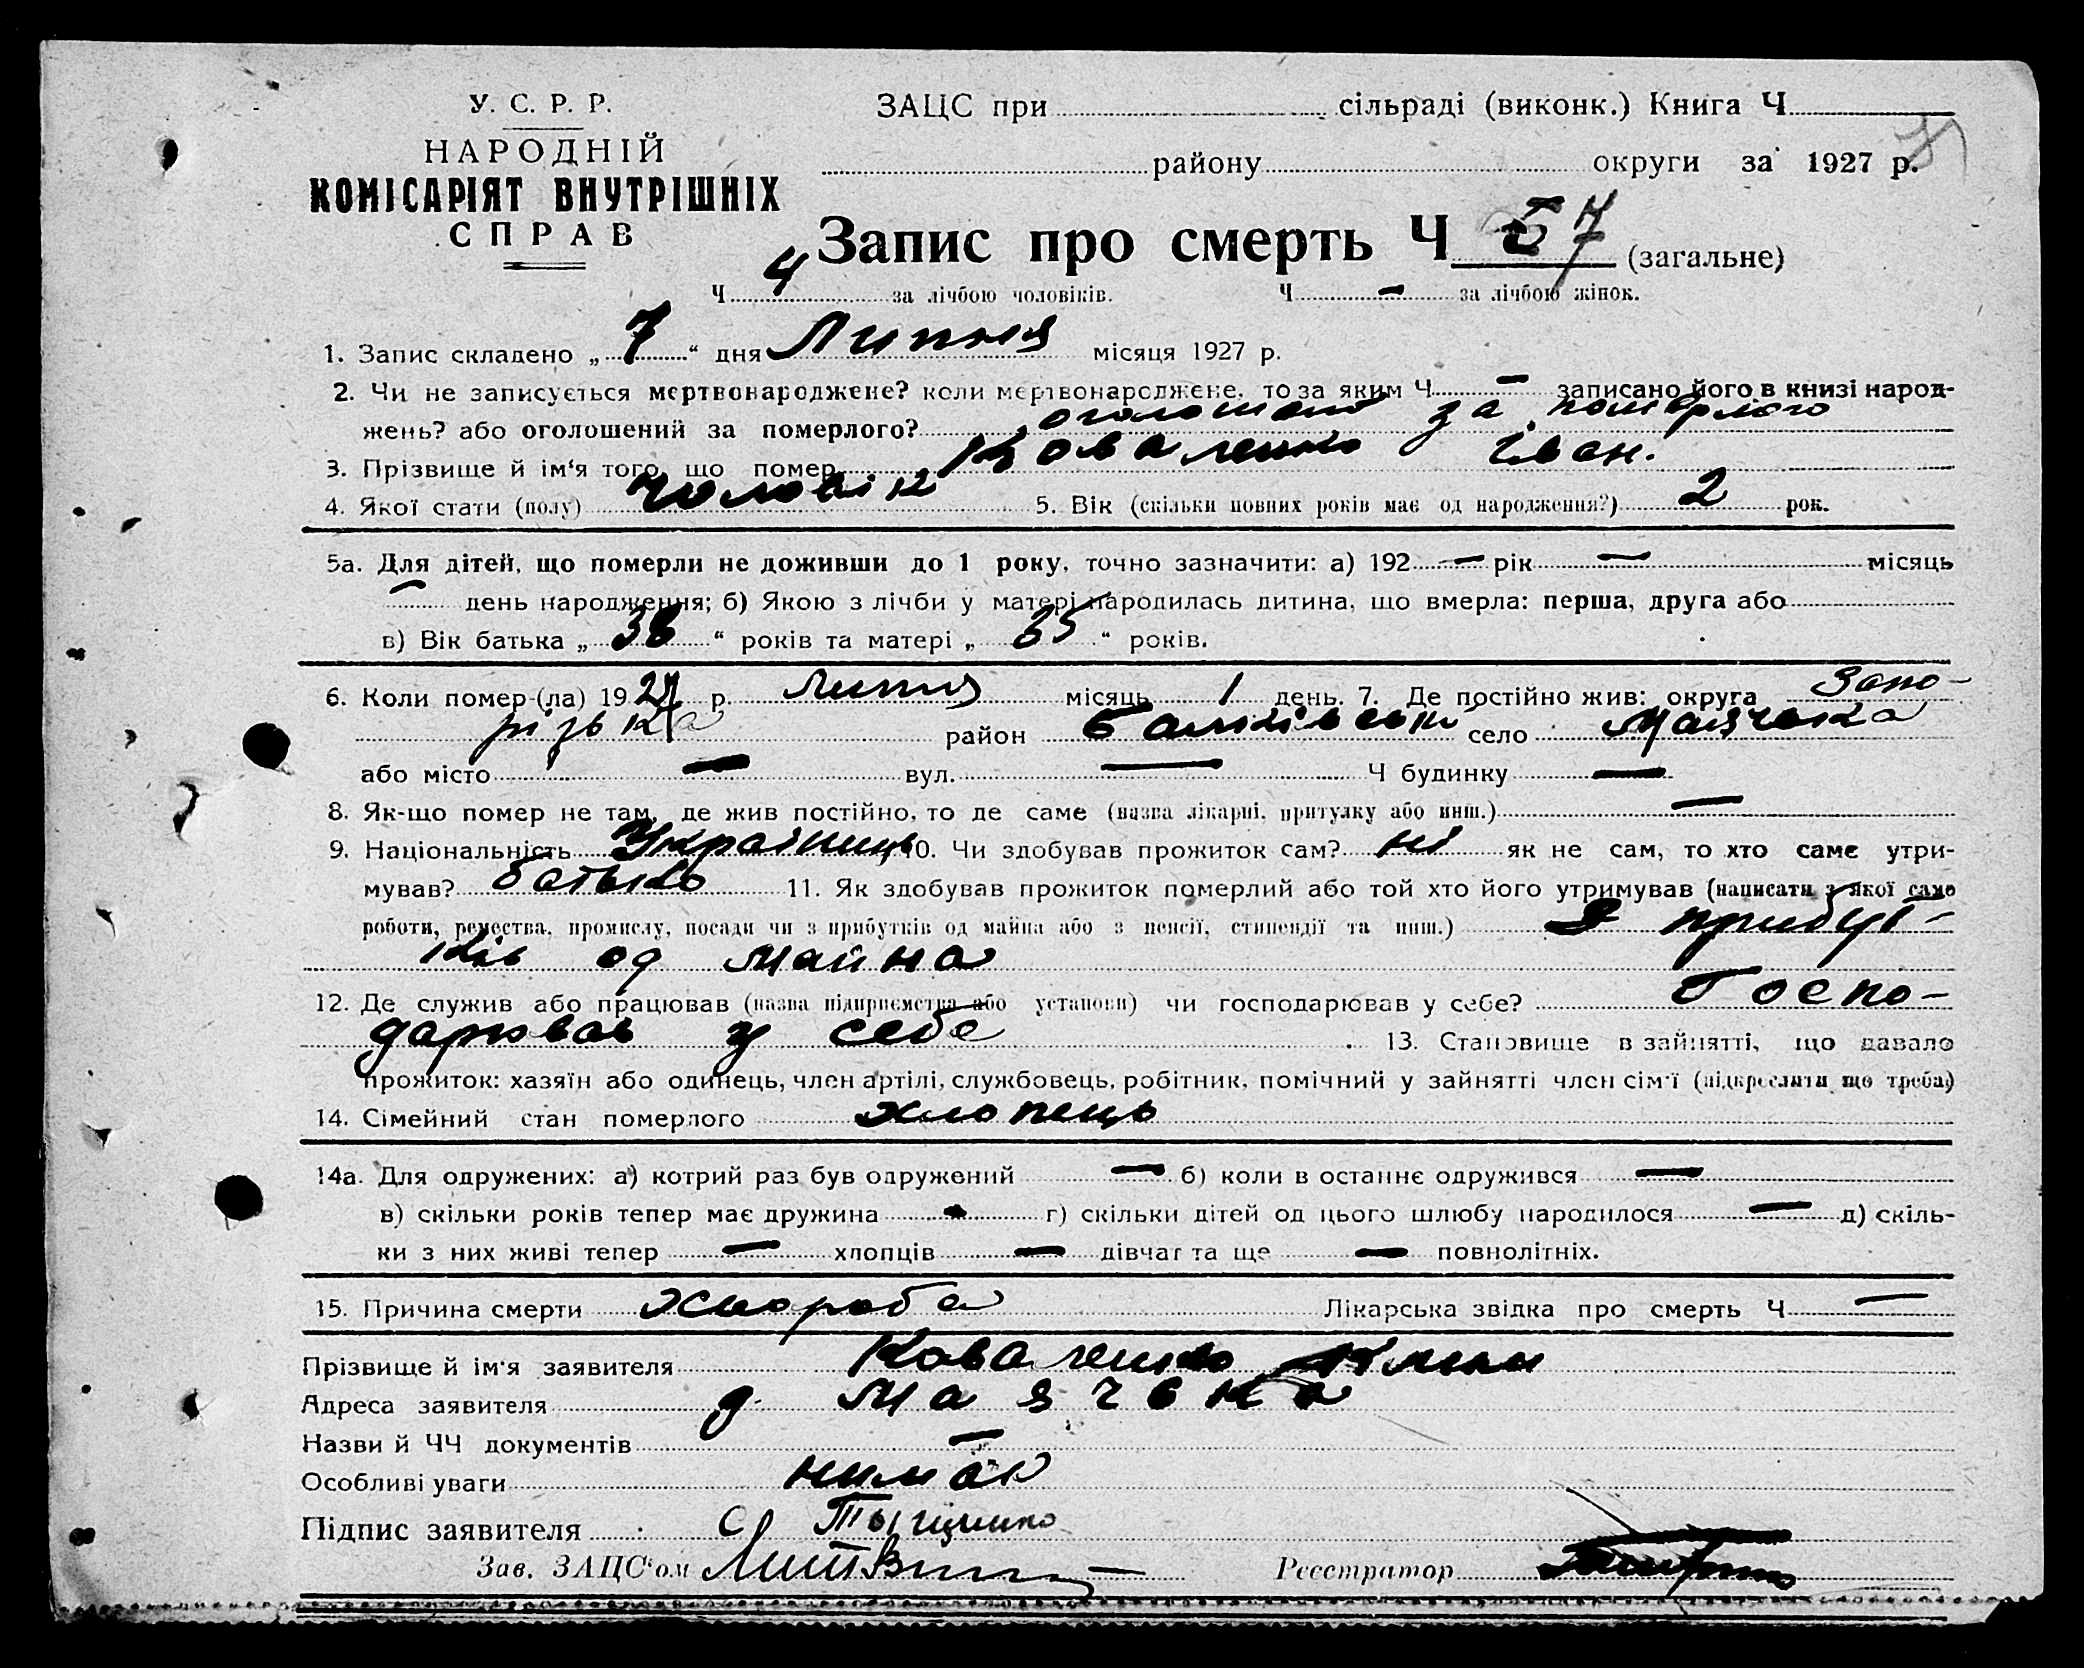 У. С. Р. Р.
НАРОДНІЙ
КОМІСАРІЯТ ВНУТРІШНІХ
СПРАВ
ЗАЦС при сільраді (виконк.) Книга Ч
району округи за 1927 р.
Запис про смерть Ч 57 (загальне)
Ч 4 за лічбою чоловіків. Ч — за лічбою жінок.
1. Запис складено „ 7 “ дня Липня місяця 1927 р.
2. Чи не записується мертвонароджене? коли мертвонароджене, то за яким Ч — записано його в книзі народ-
жень? або оголошений за померлого? оголошено за померлого
3. Прізвище й ім‘я того, що помер Коваленко Іван.
4. Якої стати (полу) Чоловік 5. Вік (скільки повних років має од народження?) 2 рок.
5а. Для дітей, що померли не доживши до 1 року, точно зазначити: а) 192 — рік — місяць
— день народження; б) Якою з лічби у матері народилась дитина, що вмерла: перша, друга або
в) Вік батька „ 38 “ років та матері „ 35 “ років.
6. Коли помер-(ла) 1927 р. Липня місяць 1 день. 7. Де постійно жив: округа Запо-
різька район Балківськ село Маячька
або місто — вул. — Ч будинку —
8. Як-що помер не там, де жив постійно, то де саме (назва лікарні, притулку або инш.) —
9. Національність Українець 10. Чи здобував прожиток сам? ні як не сам, то хто саме утри-
мував? батько 11. Як здобував прожиток померлий або той хто його утримував (написати з якої саме
роботи, ремества, промислу, посади чи з прибутків од майна або з пенсії, стипендії та инш.) З прибут-
ків од майна
12. Де служив або працював (назва підприємства або установи) чи господарював у себе? Госпо-
дарював у себе 13. Становище в зайнятті, що давало
прожиток: хазяїн або одинець, член артілі, службовець, робітник, помічний у зайнятті член сім‘ї (підкреслити що треба)
14. Сімейний стан померлого хлопець
14а. Для одружених: а) котрий раз був одружений — б) коли в останнє одружився —
в) скільки років тепер має дружина — г) скільки дітей од цього шлюбу народилося — д) скіль-
ки з них живі тепер — хлопців — дівчат та ще — повнолітніх.
15. Причина смерти хвороба Лікарська звідка про смерть Ч —
Прізвище й ім‘я заявителя Коваленко
Адреса заявителя д. Маячька
Назви й ЧЧ документів —
Особливі уваги нимає
Підпис заявителя
Зав. ЗАЦС‘ом Литвин
Реєстратор